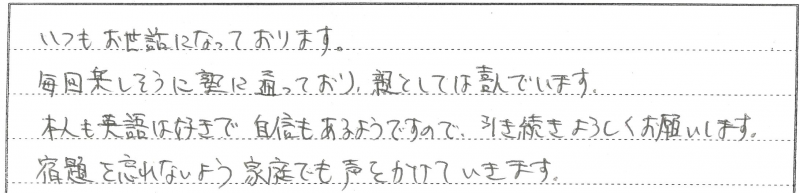 いつもお世話になっております。
毎回楽しそうに塾に通っており、親としては喜んでいます。
本人も英語は好きで自信もあるようですので、引き続きよろしくお願いします。
宿題を忘れないよう家庭でも声をかけていきます。